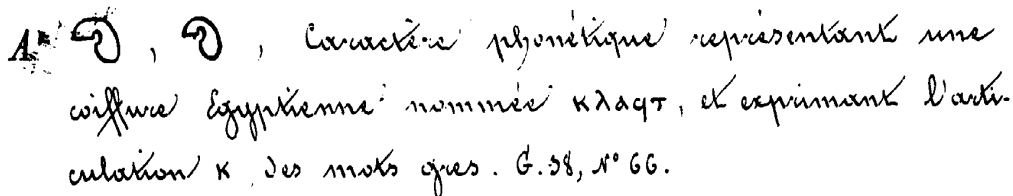 A. , , Caractère phonétique représentant une
coiffure Egyptienne nommée ⲕⲗⲁϥⲧ, et exprimant l'arti-
culation ⲕ des mots grecs. G. 38, N° 66.